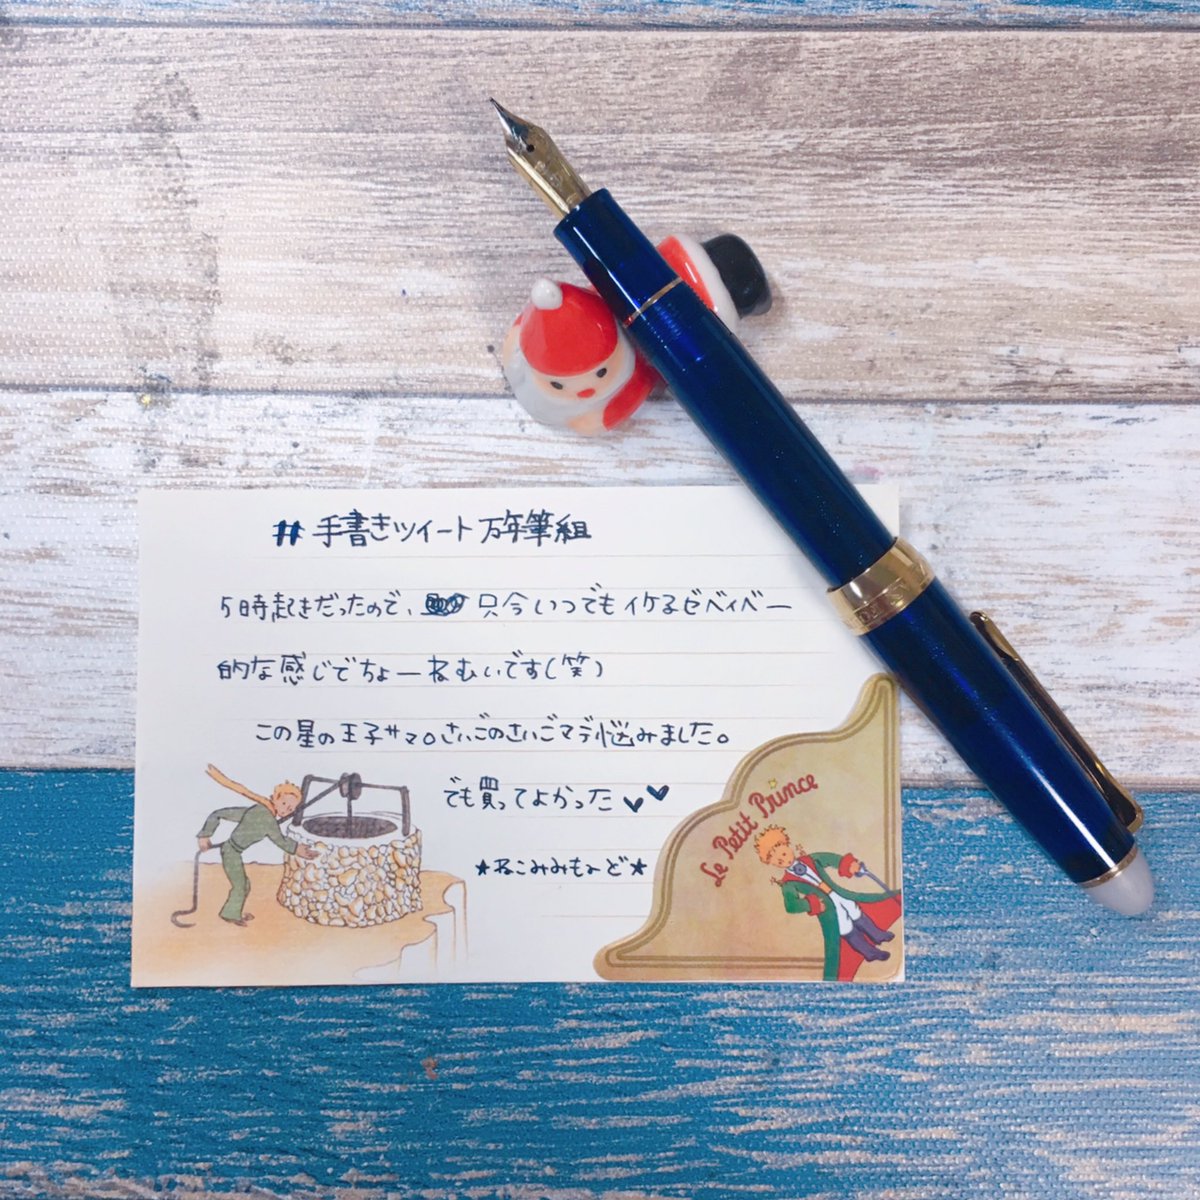 #手書きツイート万年筆組
5時起きだったので、只今いつでもイケるゼベイベー
的な感じでちょーねむいです(笑)
この星の王子サマ。さいごのさいごマデ悩みました。
でも買ってよかった♥♥
★ねこみみもーど★
Le Petit Prince